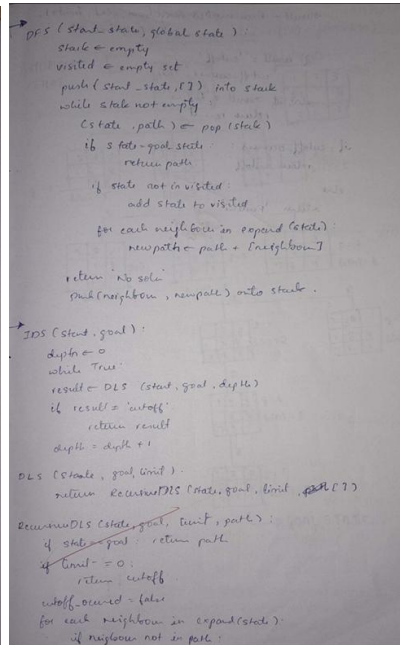 DFS (start_state, global state) :
stack ← empty
visited ← empty set
push (start_state, [ ]) into stack
while stack not empty
(state, path) ← pop (stack)
if state = goal state
return path
if state not in visited:
add state to visited
for each neighbour in expand (state) :
newpath ← path + [neighbour]
return "No soln"
Push (neighbour, newpath) onto stack.
IDS (start, goal) :
depth ← 0
while True:
result ← DLS (start, goal, depth)
if result = 'cutoff'
return result
depth = depth + 1
DLS (State, goal, limit) :
return RecursiveDLS (state, goal, limit, [ ])
RecursiveDLS (state, goal, limit, path) :
if state = goal : return path
if limit = 0 :
return cutoff
cutoff_occured = false
for each neighbour in expand (state) :
if neigbour not in path :